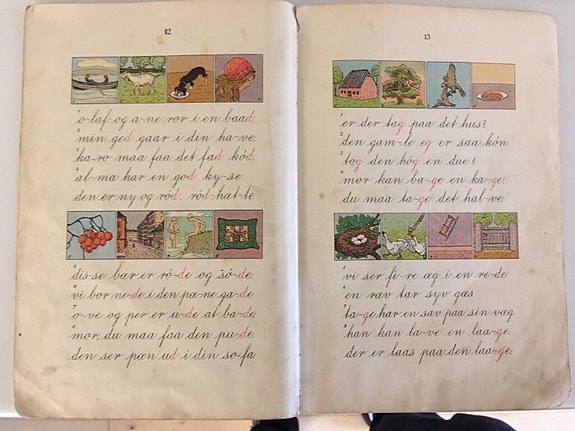 12
¹o-laf og a-ne ror i en baad.
²min ged gaar i din ha-ve.
³ka-ro maa faa det fad kød.
⁴al-ma har en god ky-se.
den er ny og rød. rød-hæt-te.
¹dis-se bær er rø-de og sø-de.
²vi bor ne-de i den pæ-ne ga-de.
³o-ve og per er u-de at ba-de.
⁴mor, du maa faa den pu-de.
den ser pæn ud i din so-fa
13
¹er der tag paa det hus?
²den gam-le eg er saa køn.
³tog den høg en due?
⁴mor kan ba-ge en ka-ge.
du maa ta-ge det hal-ve.
¹vi ser fi-re æg i en re-de.
²en ræv tar syv gæs.
³ta-ge har en sav paa sin væg.
⁴han kan la-ve en laa-ge.
der er laas paa den laa-ge.